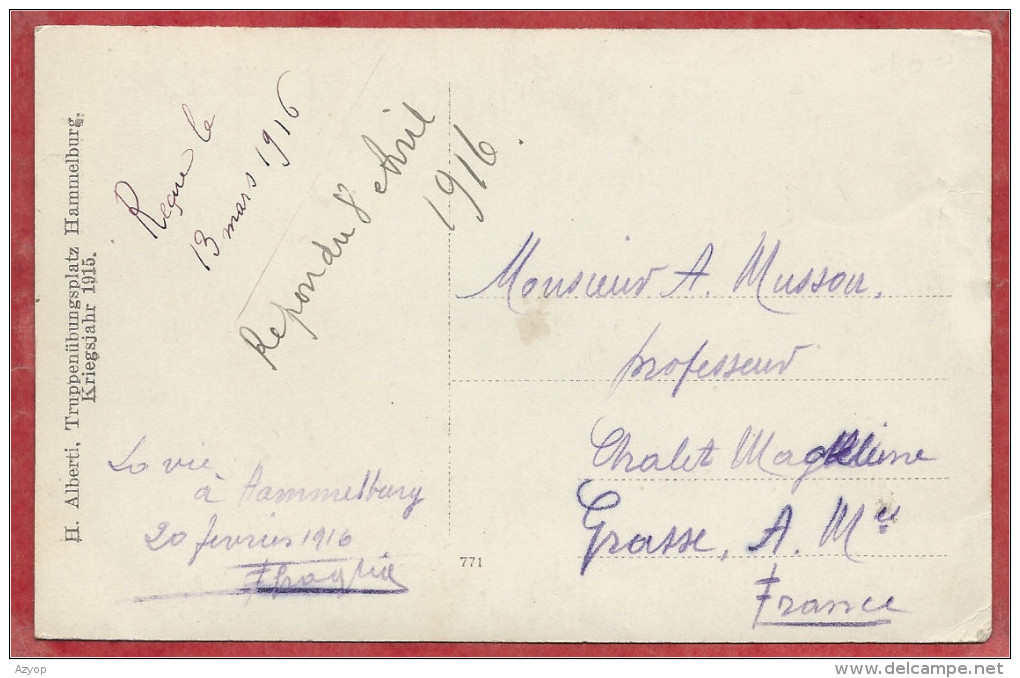 H. Alberti, Truppenübungsplatz Hammelburg.
Kriegsjahr 1915.
Reçue le
13 mars 1916
Repondu 8 Avril
1916.
La vie
à Hammelburg
20 fevrier 1916
771
Monsieur A. Musson,
professeur
Chalet Magdeleine
Grasse, A. Mes
France
Azyop
delcampe.net